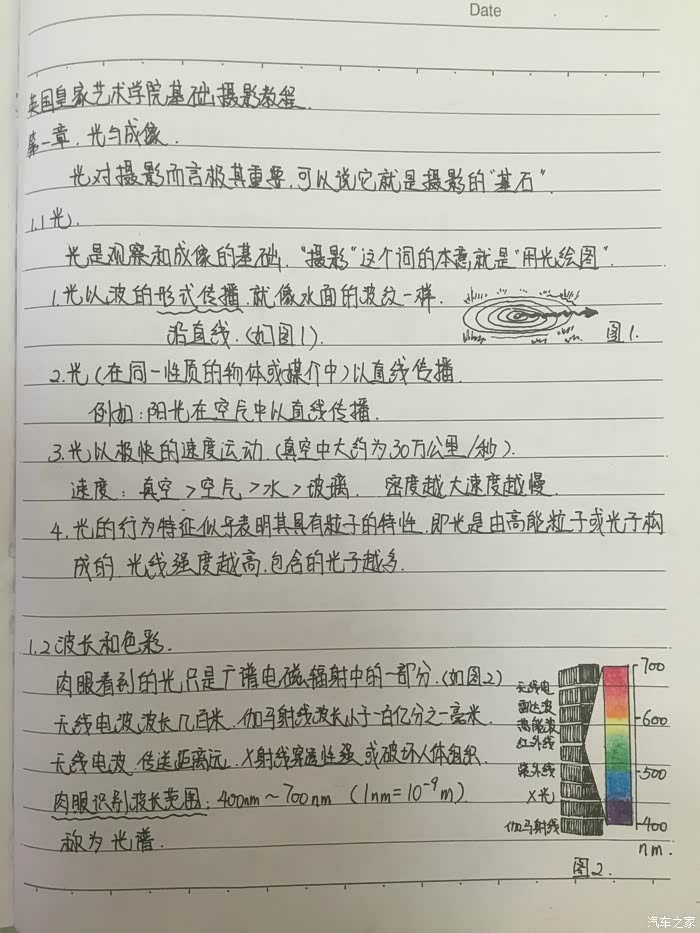 Date
英国皇家艺术学院基础摄影教程.
第一章. 光与成像.
光对摄影而言极其重要,可以说它就是摄影的"基石".
1.1 光.
光是观察和成像的基础. "摄影"这个词的本意就是"用光绘图".
1.光以波的形式传播. 就像水面的波纹一样.
沿直线.(如图1).
图1.
2.光(在同一性质的物体或媒介中)以直线传播.
例如:阳光在空气中以直线传播.
3.光以极快的速度运动.(真空中大约为30万公里/秒).
速度: 真空 > 空气 > 水 > 玻璃. 密度越大速度越慢.
4.光的行为特征似乎表明其具有粒子的特性.即光是由高能粒子或光子构
成的. 光线强度越高.包含的光子越多.
1.2 波长和色彩.
肉眼看到的光只是广谱电磁辐射中的一部分.(如图2)
无线电波波长几百米. 伽马射线波长小于一百亿分之一毫米.
无线电波. 传送距离远. X射线穿透性强 或破坏人体组织.
肉眼识别波长范围: 400nm ~ 700nm (1nm = 10⁻⁹m).
称为光谱.
无线电
雷达波
热能波
红外线
紫外线
X光
伽马射线
700
600
500
400
nm.
图2.
汽车之家